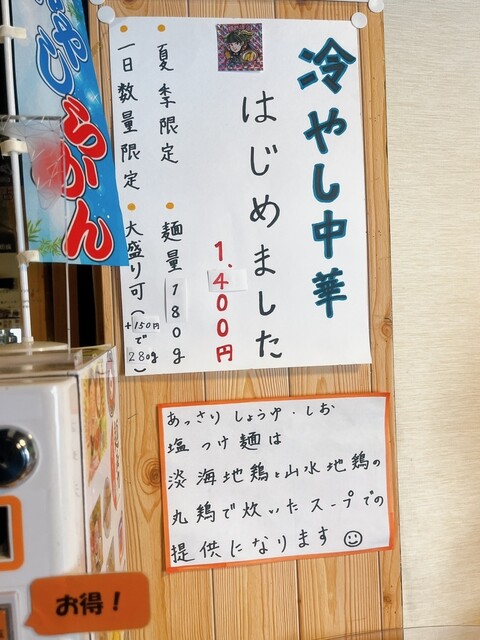 冷やし中華
はじめました
1,400円
・夏季限定
・麺量180g
・一日数量限定
・大盛り可(+150円で280g)
あっさりしょうゆ・しお
塩つけ麺は
淡海地鶏と山水地鶏の
丸鶏で炊いたスープでの
提供になります☺
らかん
お得！